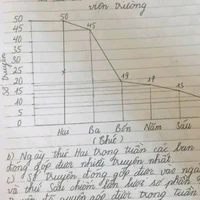 viên trường
Số truyện
50
50
45
45
40
35
30
25
20
19
17
15
15
10
5
0
Hai Ba Bốn Năm Sáu
(Thứ)
b) Ngày thứ Hai trong tuần các bạn
đóng góp được nhiều truyện nhất
c) Số truyện đóng góp được vào ngày
và thứ Sáu chiếm được số phần
quyên góp được trong tuần